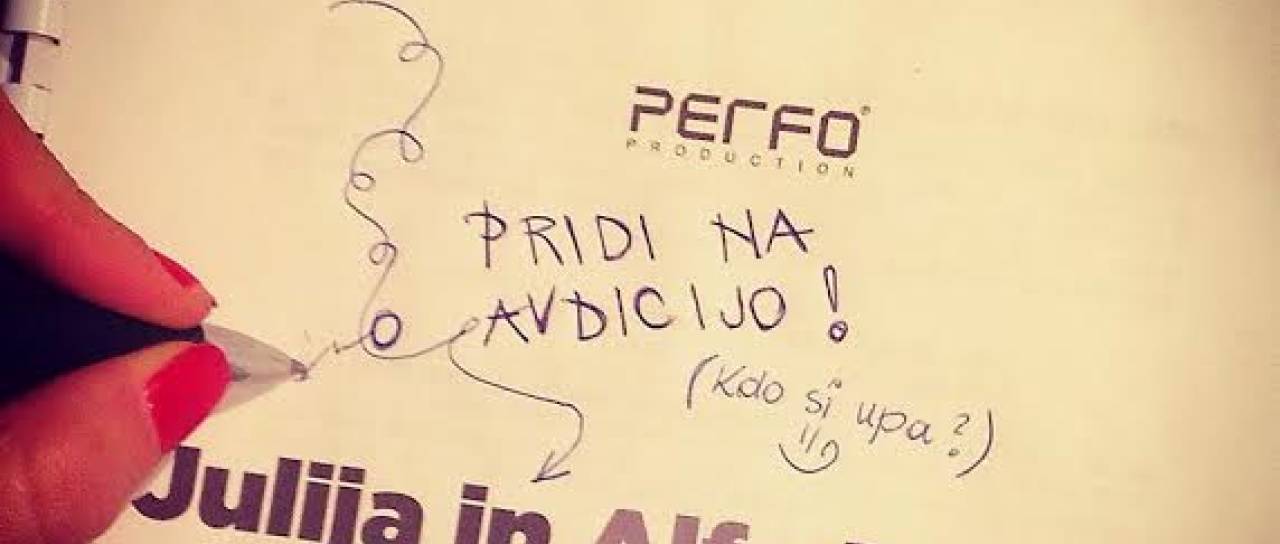 PERFO
PRODUCTION
PRIDI NA
AVDICIJO!
(Kdo si upa?)
Julija in